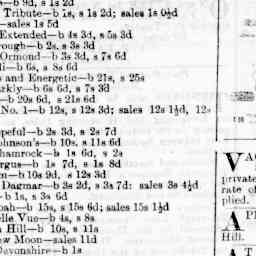 b 9d, s 1s 2d
Tribute—b 1s, s 1s 2d; sales 1s 0½d
—sales 1s 5d
Extended—b 4s 3d, s 5s 3d
rough—b 2s, s 3s 3d
Ormond—b 3s 3d, s 7s 6d
li—b 6s, s 8s 6d
s and Energetic—b 21s, s 25s
rkly—b 6s 6d, s 7s 3d
—b 20s 6d, s 21s 6d
No. 1—b 12s, s 12s 3d; sales 12s 1½d, 12s
opeful—b 2s 3d, s 2s 7d
ohnson's—b 10s, s 11s 6d
hamrock—b 1s 6d, s 2s
ergus—b 1s 7d, s 1s 8d
n—b 10s 9d, s 12s 3d
Dagmar—b 3s 2d, s 3s 7d: sales 3s 4½d
b 1s, s 3s 6d
oah—b 15s, s 15s 6d; sales 15s 1½d
elle Vue—b 4s, s 8s
n Hill—b 10s, s 11s
ew Moon—sales 11d
Devonshire—b 1s
VA
private
rate of
plied.
A PL
Hill.
A T